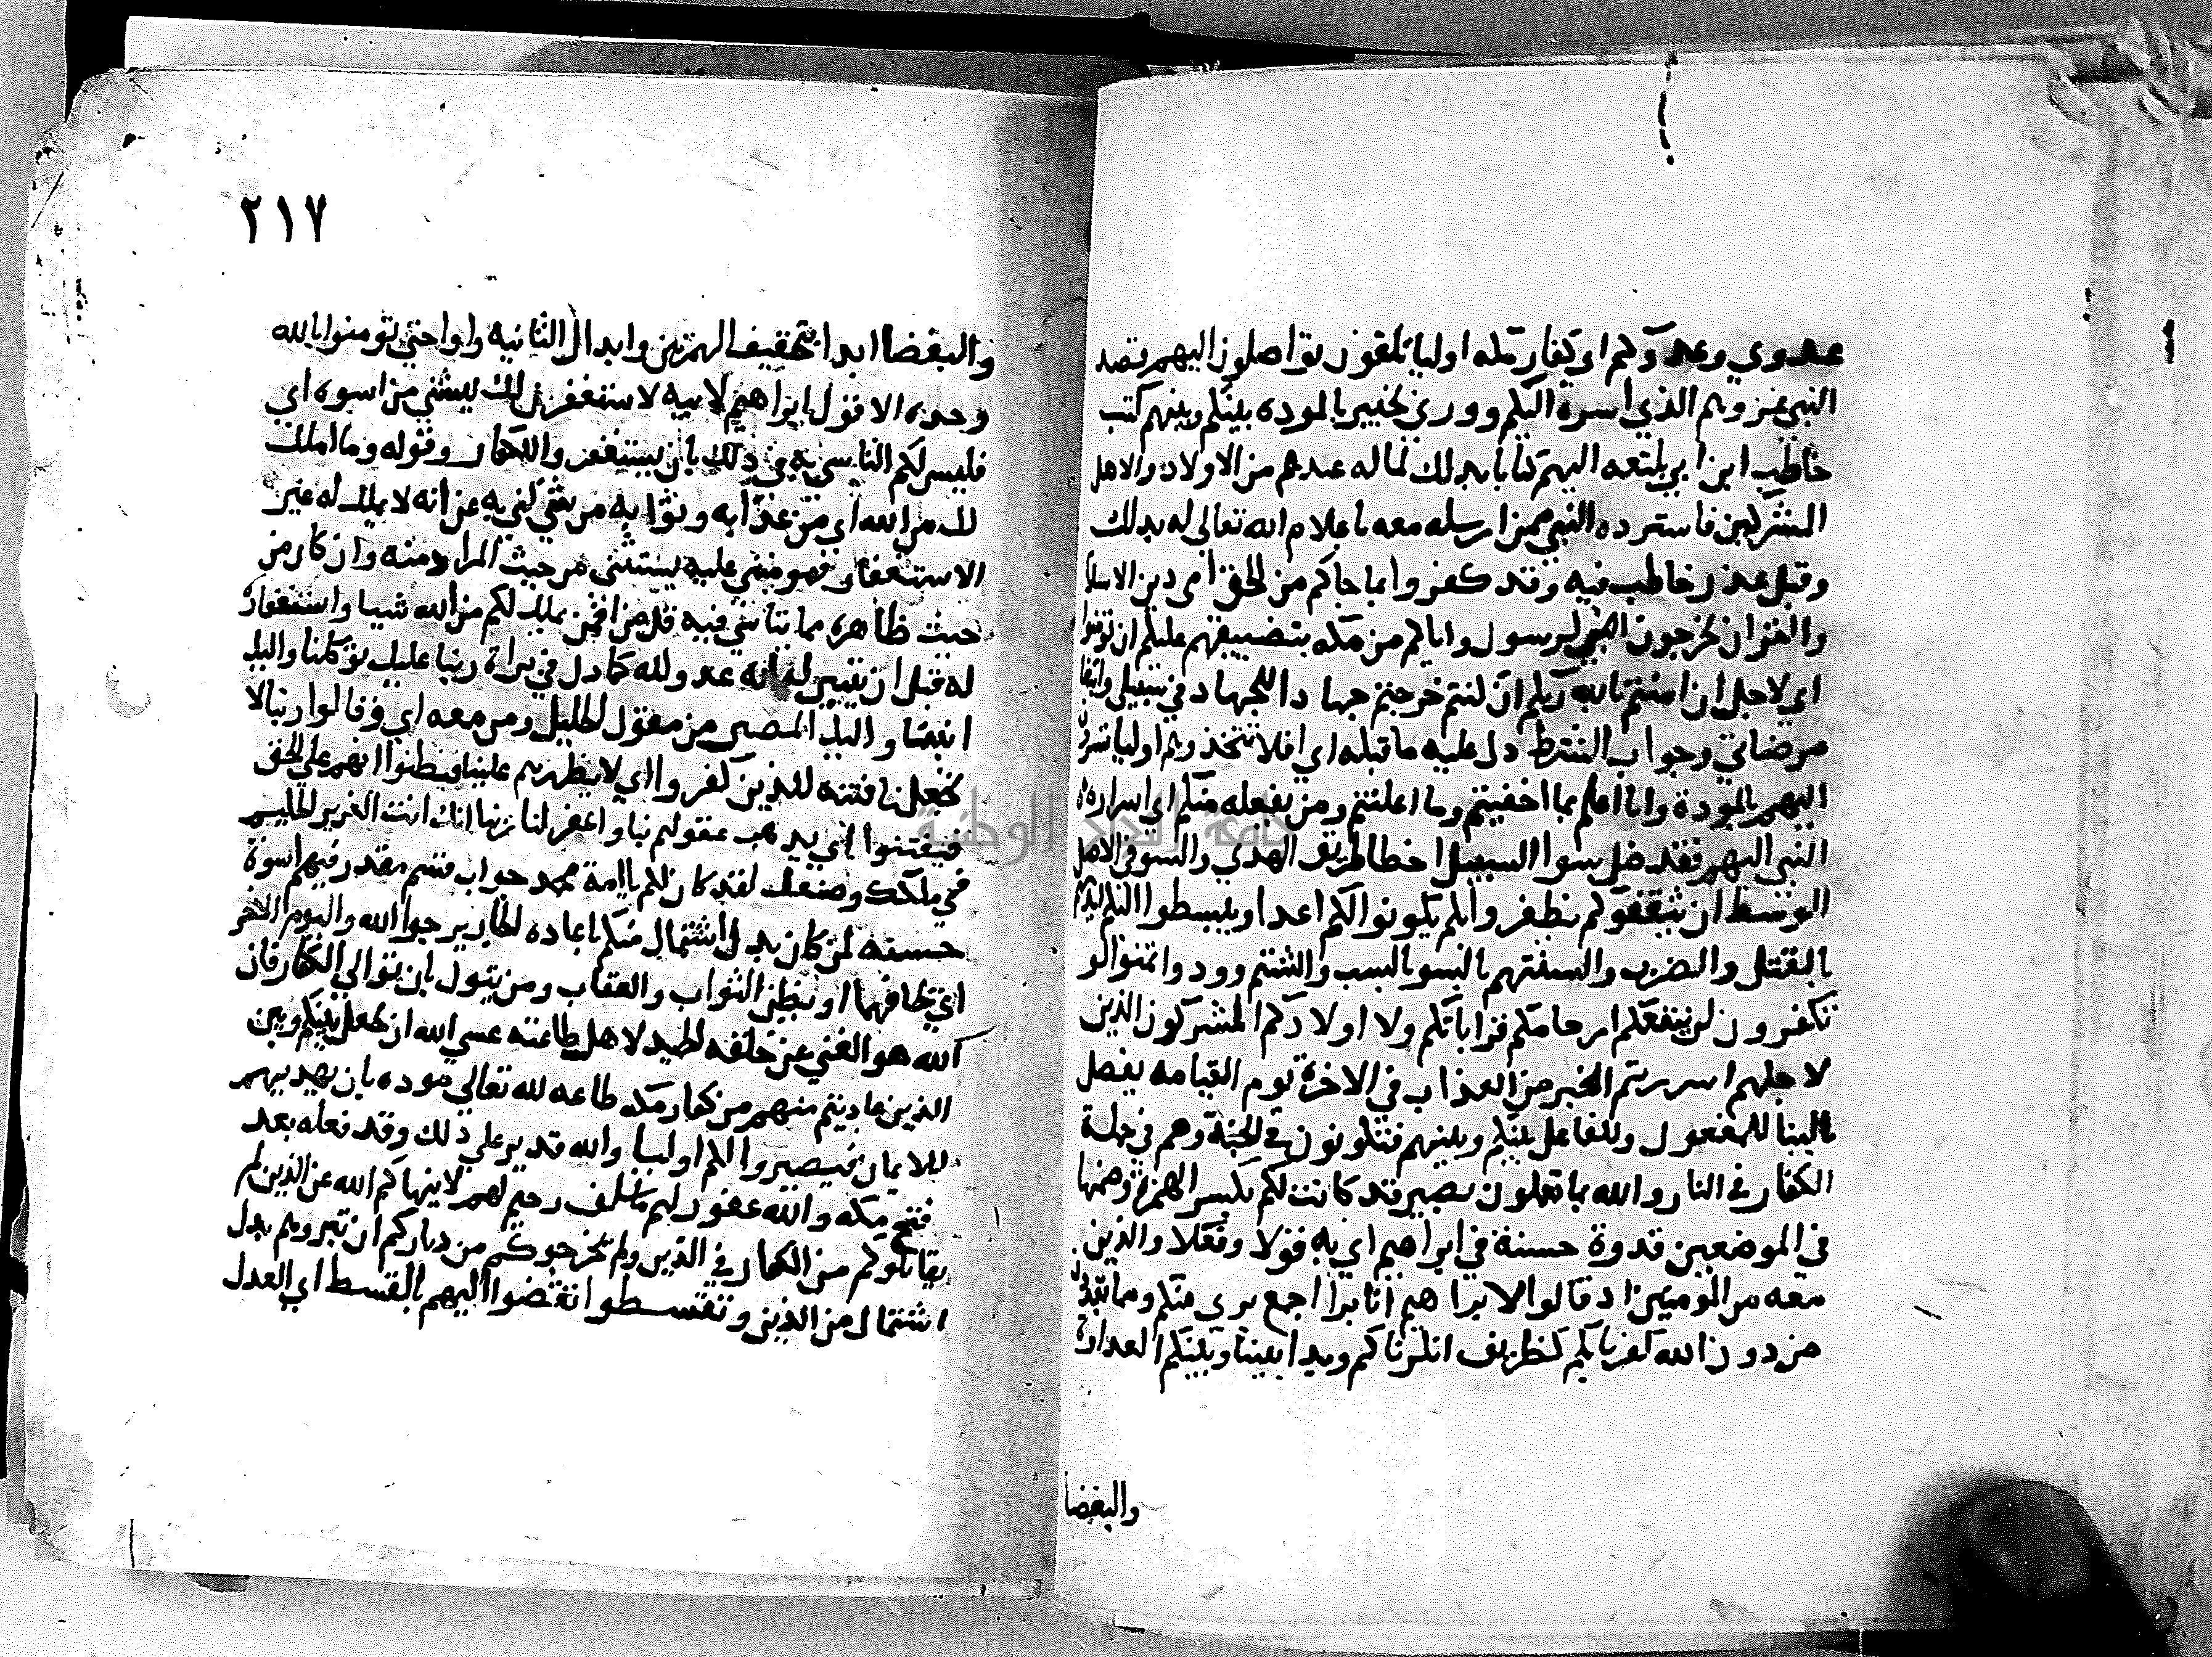 عدوي وعدوكم اي كفار مكه اوليا تلقون تواصلون اليهم قصد
النبي غزوهم الذي اسره اليكم وورى بحنين بالموده بينكم وبينهم كتب
حاطب ابن ابي بلتعه اليهم كتابا بدلك لما له عندهم من الاولاد والاهل
المشركين فاسترده النبي ممن ارسله معه باعلام الله تعالى له بدلك
وقبل عذر حاطب فيه وقد كفروا بما جاكم من الحق اي دين الاسلام
والقران يخرجون الرسول واياكم من مكه بتضييقهم عليكم ان تومنوا
اي لاجل ان امنتم بالله ربكم ان كنتم خرجتم جهادا للجهاد في سبيلي وابتغا
مرضاتي وجواب الشرط دل عليه ما قبله اي فلا تتخذوهم اوليا تسرون
اليهم بالمودة وانا اعلم بما اخفيتم وما اعلنتم ومن يفعله منكم اي اسرار
النبي اليهم فقد ضل سوا السبيل اخطا طريق الهدي والسوا في الاصل
الوسط ان يثقفوكم يظفروا بكم يكونوا لكم اعدا ويبسطوا اليكم ايديهم
بالقتل والضرب والسنتهم بالسو بالسب والشتم وودوا تمنوا لو
تكفرون لن تنفعكم ارحامكم قراباتكم ولا اولادكم المشركون الذين
لاجلهم اسررتم الخبر من العذاب في الاخرة يوم القيامه يفصل
بالبنا للمفعول وللفاعل بينكم وبينهم فتكونون في الجنة وهم في جملة
الكفار في النار والله بما تعملون بصير قد كانت لكم بكسر الهمزة وضمها
في الموضعين قدوة حسنة في ابراهيم اي به قولا وفعلا والذين
معه من المومنين اد قالوا لا برا هيم انا برا اجمع بري منكم ومما تعبدون
من دون الله كفرنا بكم كظريف انكرناكم وبدا بيننا وبينكم العداوة
والبغضا
٢١٧
والبغضا ابدا بتحقيق الهمزتين وابدال الثانيه واوا حتي تومنوا بالله
وحده الا قول ابراهيم لابيه لاستغفرن لك مستثني من اسوه اي
فليس لكم التاسي به في ذلك بان تستغفروا للكفار وقوله وما املك
لك من الله اي من عذابه وثوابه من شي كني به عن انه لا يملك له غير
الاستغفار فهو مبني عليه مستثني من حيث المراد منه وان كان من
حيث ظاهره مما يتاسي فيه قل من فمن يملك لكم من الله شيا واستغفاره
له قبل ان تبين له انه عدو لله كما دل في براة ربنا عليك توكلنا واليك
انبنا واليك المصير من مقول الخليل ومن معه اي وقالوا ربنا لا
تجعلنا فتنه للذين كفروا اي لا تظهرهم علينا فيظنوا انهم علي الحق
فيفتنوا اي يذهب عقولهم بنا واغفر لنا ربنا انك انت العزيز الحكيم
في ملكك وصنعك لقد كان لكم يا امة محمد جواب قسم مقدر فيهم اسوة
حسنه لمن كان بدل اشتمال منكم باعاده الجار يرجوا الله واليوم الاخر
اي يخافهما او يظن الثواب والعقاب ومن يتول بان يتوالي الكفار فان
الله هو الغني عن خلقه الحميد لاهل طاعته عسي الله ان يجعل بينكم وبين
الذين عاديتم منهم من كفار مكه طاعه لله تعالي موده بان يهديهم
للايمان فيصيروا لكم اوليا والله قدير علي ذلك وقد فعله بعد
فتح مكه والله غفور لهم ما سلف رحيم لهم لا ينهاكم الله عن الذين لم
يقاتلوكم من الكفار في الدين ولم يخرجوكم من دياركم ان تبروهم بدل
اشتمال من الذين وتقسطوا تفضوا اليهم بالقسط اي العدل
جامعة النجاح الوطنية